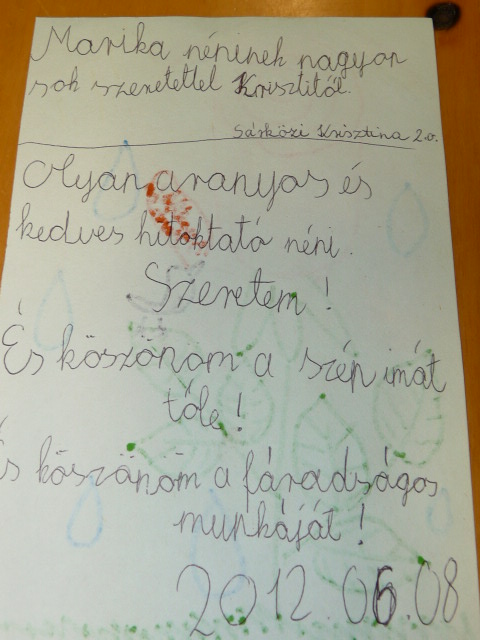 Marika néninek nagyon
sok szeretettel Krisztitől.
Sárközi Krisztina 2.o.
Olyan aranyos és
kedves hitoktató néni.
Szeretem !
És köszönöm a szép imát
tőle !
És köszönöm a fáradságos
munkáját !
2012.06.08